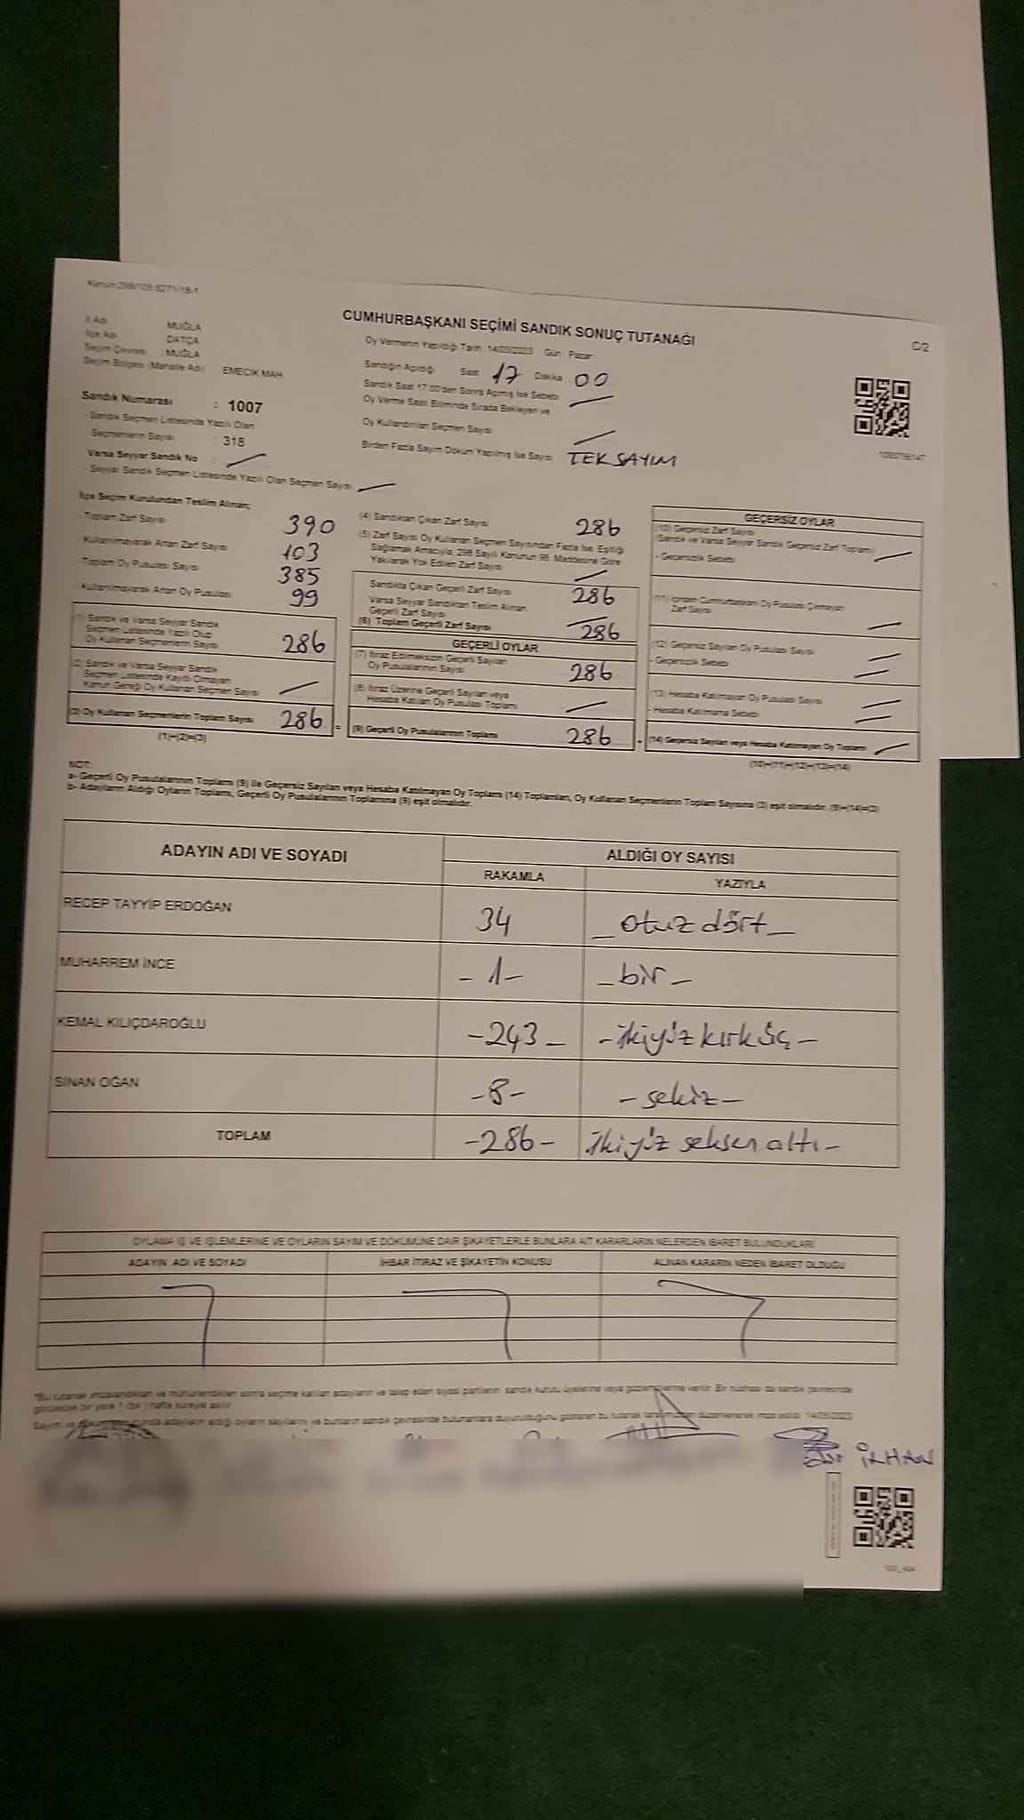 Kanun:298/105 6271/18-1
CUMHURBAŞKANI SEÇİMİ SANDIK SONUÇ TUTANAĞI
C/2
İl Adı MUĞLA
İlçe Adı DATÇA
Seçim Çevresi MUĞLA
Seçim Bölgesi (Mahalle Adı) EMECİK MAH
Sandık Numarası : 1007
- Sandık Seçmen Listesinde Yazılı Olan
Seçmenlerin Sayısı : 318
Varsa Seyyar Sandık No
- Seyyar Sandık Seçmen Listesinde Yazılı Olan Seçmen Sayısı
Oy Vermenin Yapıldığı Tarih: 14/05/2023 Gün: Pazar
Sandığın Açıldığı Saat 17 Dakika 00
Sandık Saat 17.00'den Sonra Açılmış İse Sebebi
Oy Verme Saati Bitiminde Sırada Bekleyen ve
Oy Kullandırılan Seçmen Sayısı
Birden Fazla Sayım Döküm Yapılmış İse Sayısı TEK SAYIM
İlçe Seçim Kurulundan Teslim Alınan;
- Toplam Zarf Sayısı 390
- Kullanılmayarak Artan Zarf Sayısı 103
- Toplam Oy Pusulası Sayısı 385
- Kullanılmayarak Artan Oy Pusulası 99
(1) Sandık ve Varsa Seyyar Sandık
Seçmen Listesinde Yazılı Olup
Oy Kullanan Seçmenlerin Sayısı 286
(2) Sandık ve Varsa Seyyar Sandık
Seçmen Listesinde Kaydı Olmayan
Kanun Gereği Oy Kullanan Seçmen Sayısı
(3) Oy Kullanan Seçmenlerin Toplam Sayısı 286 =
(1)+(2)=(3)
(4) Sandıktan Çıkan Zarf Sayısı 286
(5) Zarf Sayısı Oy Kullanan Seçmen Sayısından Fazla İse, Eşitliği
Sağlamak Amacıyla, 298 Sayılı Kanunun 98. Maddesine Göre
Yakılarak Yok Edilen Zarf Sayısı
Sandıkta Çıkan Geçerli Zarf Sayısı 286
Varsa Seyyar Sandıktan Teslim Alınan
Geçerli Zarf Sayısı
(6) Toplam Geçerli Zarf Sayısı 286
GEÇERLİ OYLAR
(7) İtiraz Edilmeksizin Geçerli Sayılan
Oy Pusulalarının Sayısı 286
(8) İtiraz Üzerine Geçerli Sayılan veya
Hesaba Katılan Oy Pusulası Toplamı
(9) Geçerli Oy Pusulalarının Toplamı 286 +
GEÇERSİZ OYLAR
(10) Geçersiz Zarf Sayısı
(Sandık ve Varsa Seyyar Sandık Geçersiz Zarf Toplamı)
- Geçersizlik Sebebi
(11) İçinden Cumhurbaşkanı Oy Pusulası Çıkmayan
Zarf Sayısı
(12) Geçersiz Sayılan Oy Pusulası Sayısı
- Geçersizlik Sebebi
(13) Hesaba Katılmayan Oy Pusulası Sayısı
- Hesaba Katılmama Sebebi
(14) Geçersiz Sayılan veya Hesaba Katılmayan Oy Toplamı
(10)+(11)+(12)+(13)=(14)
NOT:
a- Geçerli Oy Pusulalarının Toplamı (9) ile Geçersiz Sayılan veya Hesaba Katılmayan Oy Toplamı (14) Toplamları, Oy Kullanan Seçmenlerin Toplam Sayısına (3) eşit olmalıdır. (9)+(14)=(3)
b- Adayların Aldığı Oyların Toplamı, Geçerli Oy Pusulalarının Toplamına (9) eşit olmalıdır.
ADAYIN ADI VE SOYADI
ALDIĞI OY SAYISI
RAKAMLA YAZIYLA
RECEP TAYYİP ERDOĞAN 34 _ otuz dört _
MUHARREM İNCE - 1 - _ bir _
KEMAL KILIÇDAROĞLU - 243 - - ikiyüz kırk üç -
SİNAN OĞAN - 8 - - sekiz -
TOPLAM - 286 - ikiyüz seksen altı -
OYLAMA İŞ VE İŞLEMLERİNE VE OYLARIN SAYIM VE DÖKÜMÜNE DAİR ŞİKAYETLERLE BUNLARA AİT KARARLARIN NELERDEN İBARET BULUNDUKLARI
ADAYIN ADI VE SOYADI İHBAR İTİRAZ VE ŞİKAYETİN KONUSU ALINAN KARARIN NEDEN İBARET OLDUĞU
*Bu tutanak imzalandıktan ve mühürlendikten sonra seçime katılan adayların ve talep eden siyasi partilerin sandık kurulu üyelerine veya gözlemcilerine verilir. Bir nüshası da sandık çevresinde
görülecek bir yere 1 (bir) hafta süreyle asılır.
İLHAN